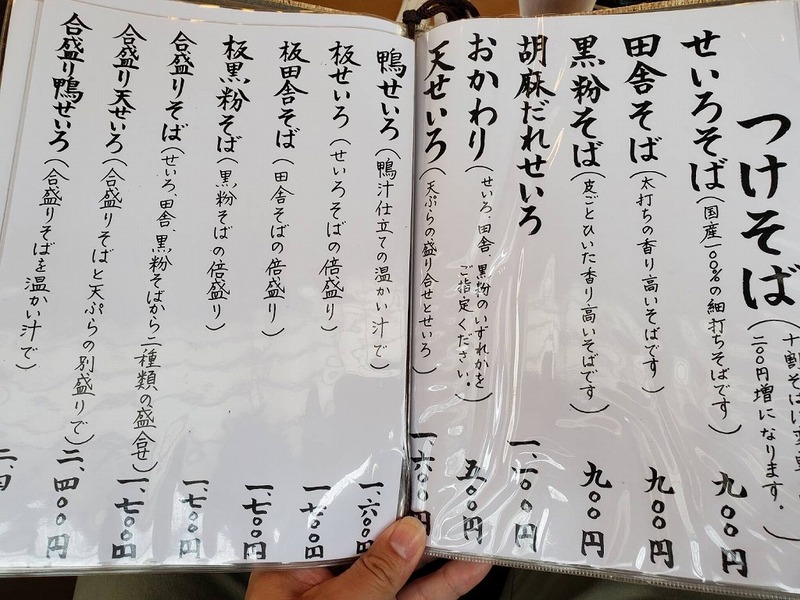 つけそば
(十割そば
二〇〇円増になります。)
せいろそば(国産一〇〇%の細打ちそばです) 九〇〇円
田舎そば(太打ちの香り高いそばです) 九〇〇円
黒粉そば(皮ごとひいた香り高いそばです) 九〇〇円
胡麻だれせいろ 一、一〇〇円
おかわり(せいろ、田舎、黒粉のいずれかを
ご指定ください。) 五〇〇円
天せいろ(天ぷらの盛り合せとせいろ) 一、六〇〇円
鴨せいろ(鴨汁仕立ての温かい汁で) 一、六〇〇円
板せいろ(せいろそばの倍盛り) 一、七〇〇円
板田舎そば(田舎そばの倍盛り) 一、七〇〇円
板黒粉そば(黒粉そばの倍盛り) 一、七〇〇円
合盛りそば(せいろ、田舎、黒粉そばから二種類の盛合せ) 一、七〇〇円
合盛り天せいろ(合盛りそばと天ぷらの別盛りで) 二、四〇〇円
合盛り鴨せいろ(合盛りそばを温かい汁で) 二、四